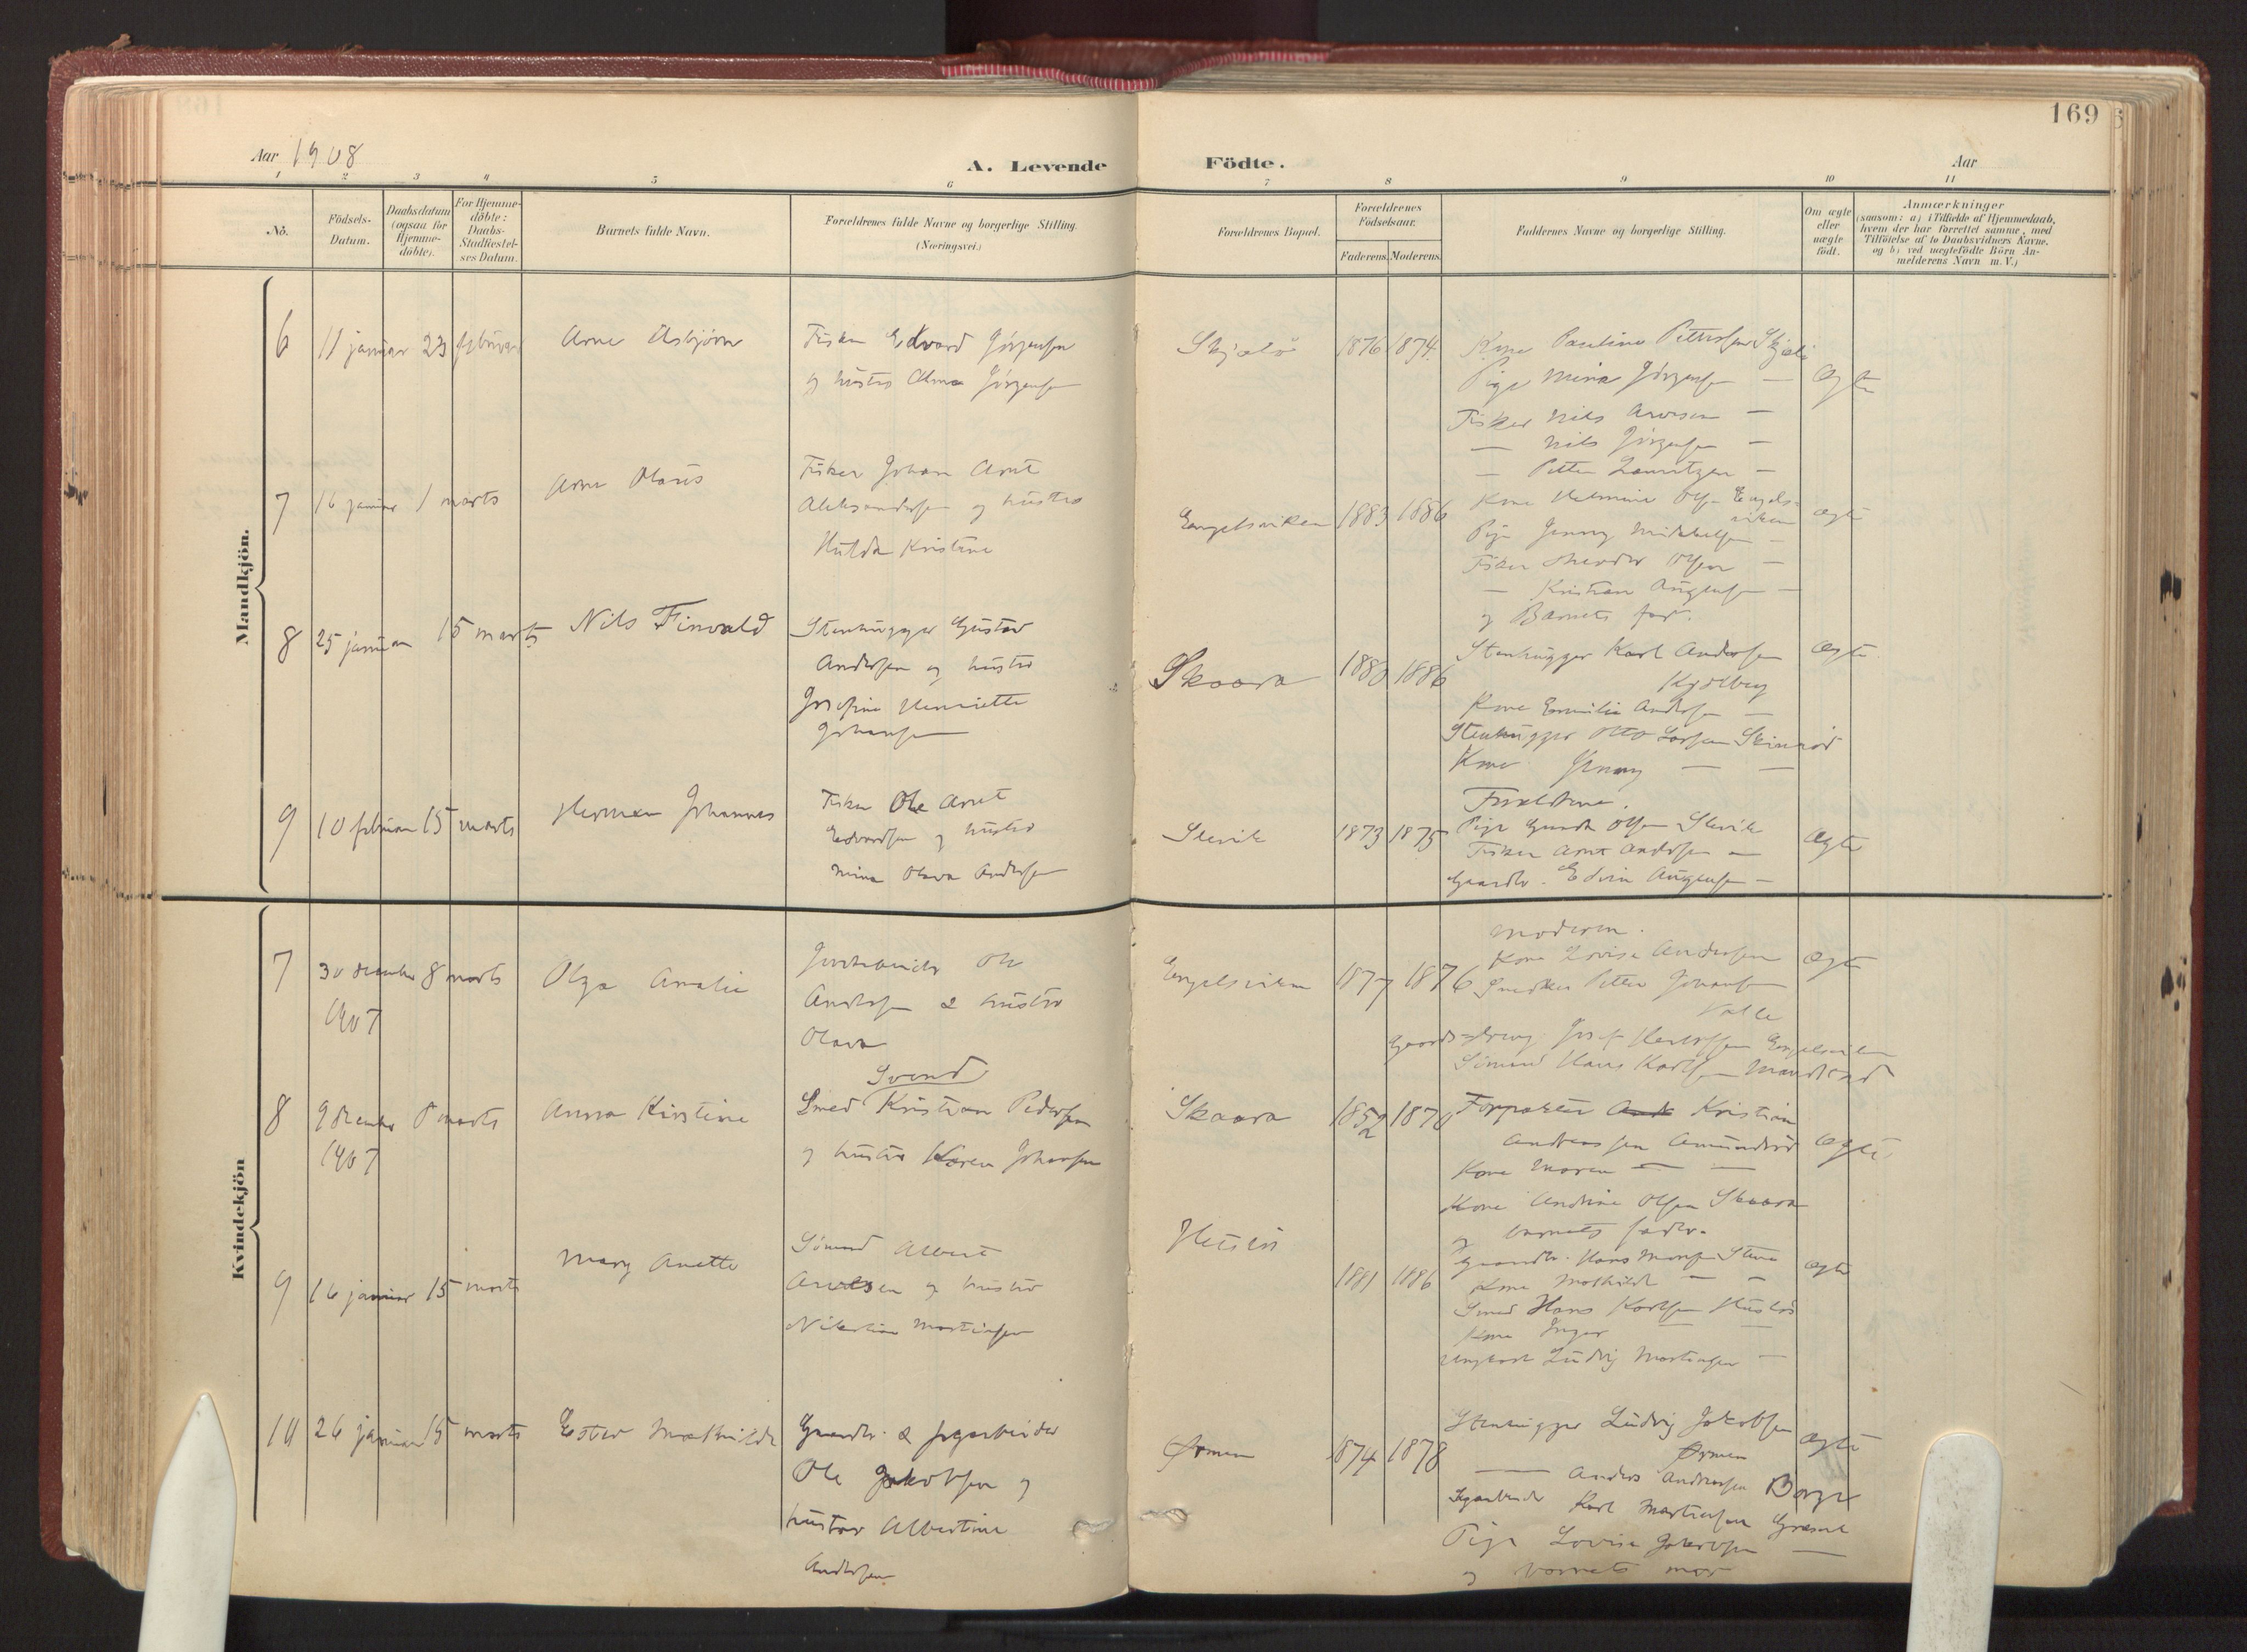 169
Aar 1908
A. Levende Födte.
Aar
1 2 3 4 5 6 7 8 9 10 11
Nô.
Födsels-Datum.
Daabsdatum (ogsaa for Hjemme-döbte).
For Hjemme-döbte: Daabs-Stadfæstel-ses Datum.
Barnets fulde Navn.
Forældrenes fulde Navne og borgerlige Stilling.
(Næringsvei.)
Forældrenes Bopæl.
Forældrenes Födselsaar.
Faderens. Moderens.
Faddernes Navne og borgerlige Stilling.
Om ægte eller uægte födt.
Anmærkninger
(saasom: a) i Tilfælde af Hjemmedaab,
hvem der har forrettet samme, med
Tilföielse af to Daabsvidners Navne,
og b) ved uægtefödte Börn An-
melderens Navn m. V.)
Mandkjön.
6 11 januar 23 februar Arne Asbjørn
Fisker Edvard Jörgensen
og hustro Alma Jörgensen
Skjælö 1876 1874
Kone Pauline Pettersen Skjælö
Pige Mina Jörgensen —
Ægte
Fisker Nils Arvesen —
— Nils Jörgensen —
— Petter Lauritzen —
7 16 januar 1 marts Arne Olaus
Fisker Johan Arnt
Aleksandersen og hustro
Hulda Kristine
Engelsviken 1883 1886
Kone Helmine Olsen Engels-
viken
Ægte
Pige Jenny Mikkelsen —
Fisker Olsen —
— Kristian Augensen —
og Barnets far.
8 25 januar 15 marts Nils Finvald
Stenhugger Gustav
Andersen og hustro
Josefine Henriette
Johansen
Skaara 1880 1886
Stenhugger Karl Andersen
Ægte
Kone Emilie Andersen —
Stenhugger Otto Larsen
Kone Jenny — —
9 10 februar 15 marts Herman Johannes
Fisker Ole Arnt
Edvardsen og hustro
Mina Olava Andersen
Slevik 1873 1875
Forældrene.
Pige Gunda Olsen Slevik
Ægte
Fisker Arnt Andersen —
Gaardbr. Edvin Augensen —
Kvindekjön
7 30 december 1907 8 marts Olga Amalie
Ole
Andersen & hustro
Olava
Engelsviken 1877 1876
Moderen.
Kone Lovise Andersen
Ægte
Snedker Petter Johansen
Valle
Josef Engelsviken
Sömand Hans Karlsen
8 9 december 1907 8 marts Anna Kirstine
Svend
Smed Kristian Pedersen
og hustro Karen Johansen
Skaara 1852 1870
Forpagter Kristian
Andreassen Amundröd
Ægte
Kone Maren — —
Kone Andrine Olsen Skaara
og barnets fader.
9 16 januar 15 marts Mary Anette
Sömand Albert
Arvesen og hustro
Martinsen
1881 1886
Gaardbr. Hans
Ægte
Kone Mathilde — —
Smed Hans Karlsen
Kone Inger — —
Ungkarl Ludvig Martinsen —
10 26 januar 15 marts Ester Mathilde
Gaardbr. &
Ole Jakobsen og
hustro Albertine
Andersen
Ørmen 1874 1878
Stenhugger Ludvig Jakobsen
Ørmen
Ægte
— Anders Andreassen Borge
Karl Martinsen
Pige Lovise Jakobsen —
og barnets mor